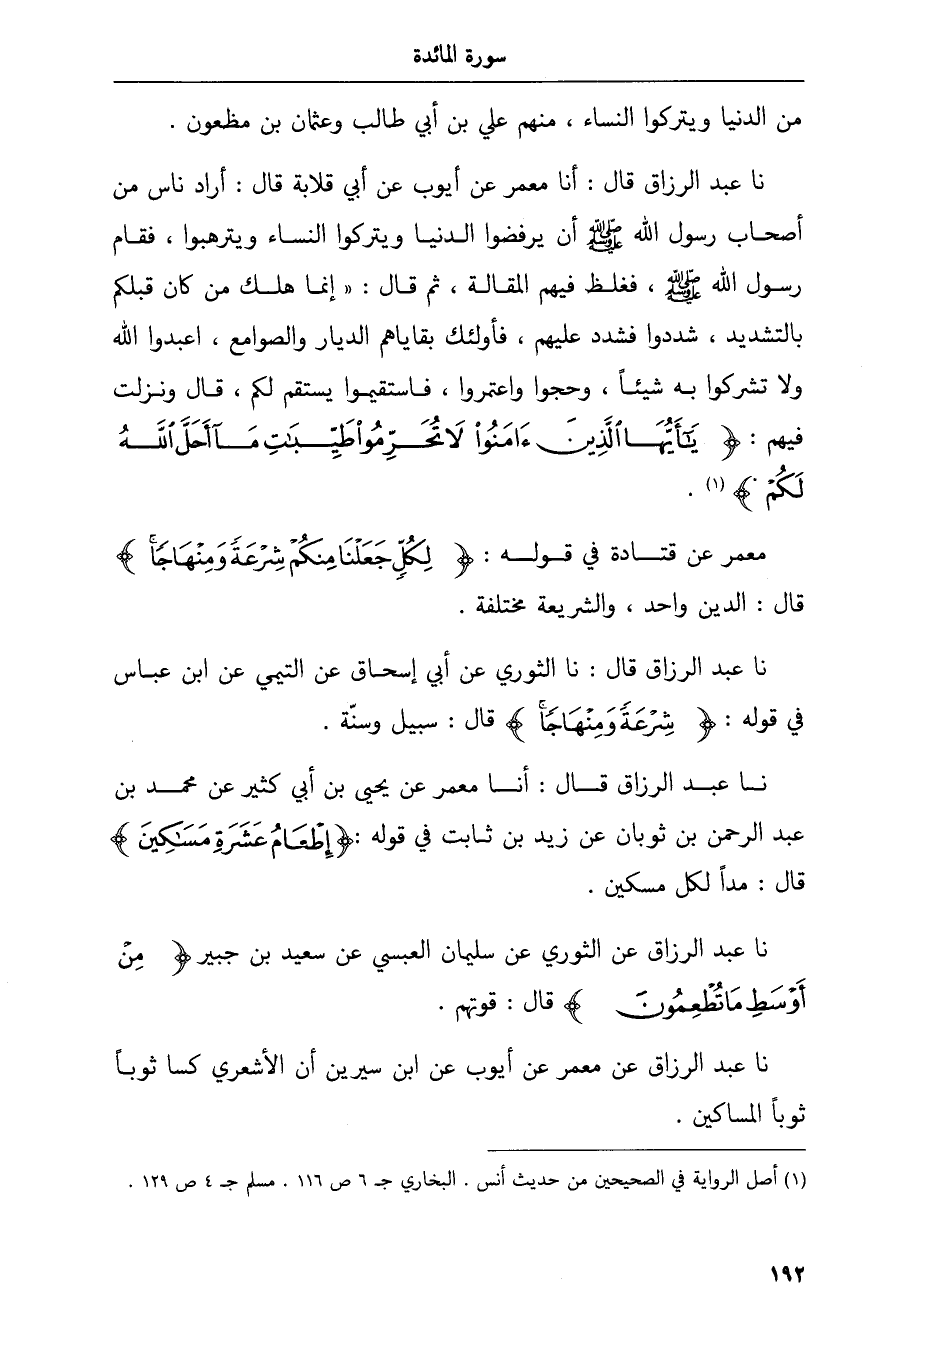 سورة المائدة
من الدنيا ويتركوا النساء ، منهم علي بن أبي طالب وعثمان بن مظعون .
نا عبد الرزاق قال : أنا معمر عن أيوب عن أبي قلابة قال : أراد ناس من
أصحاب رسول الله ﷺ أن يرفضوا الدنيا ويتركوا النساء ويترهبوا ، فقام
رسول الله ﷺ ، فغلظ فيهم المقالة ، ثم قال : « إنما هلك من كان قبلكم
بالتشديد ، شددوا فشدد عليهم ، فأولئك بقاياهم الديار والصوامع ، اعبدوا الله
ولا تشركوا به شيئاً ، وحجوا واعتمروا ، فاستقيموا يستقم لكم ، قال ونزلت
فيهم : ﴿ يَٰٓأَيُّهَا ٱلَّذِينَ ءَامَنُوا۟ لَا تُحَرِّمُوا۟ طَيِّبَٰتِ مَآ أَحَلَّ ٱللَّهُ
لَكُمْ ﴾ (١) .
معمر عن قتادة في قوله : ﴿ لِكُلٍّ جَعَلْنَا مِنكُمْ شِرْعَةً وَمِنْهَاجًا ﴾
قال : الدين واحد ، والشريعة مختلفة .
نا عبد الرزاق قال : نا الثوري عن أبي إسحاق عن التيمي عن ابن عباس
في قوله : ﴿ شِرْعَةً وَمِنْهَاجًا ﴾ قال : سبيل وسنّة .
نا عبد الرزاق قال : أنا معمر عن يحيى بن أبي كثير عن محمد بن
عبد الرحمن بن ثوبان عن زيد بن ثابت في قوله :﴿ إِطْعَامُ عَشَرَةِ مَسَٰكِينَ ﴾
قال : مداً لكل مسكين .
نا عبد الرزاق عن الثوري عن سليمان العبسي عن سعيد بن جبير ﴿ مِنْ
أَوْسَطِ مَا تُطْعِمُونَ ﴾ قال : قوتهم .
نا عبد الرزاق عن معمر عن أيوب عن ابن سيرين أن الأشعري كسا ثوباً
ثوباً المساكين .
(١) أصل الرواية في الصحيحين من حديث أنس . البخاري جـ ٦ ص ١١٦ . مسلم جـ ٤ ص ١٢٩ .
١٩٢